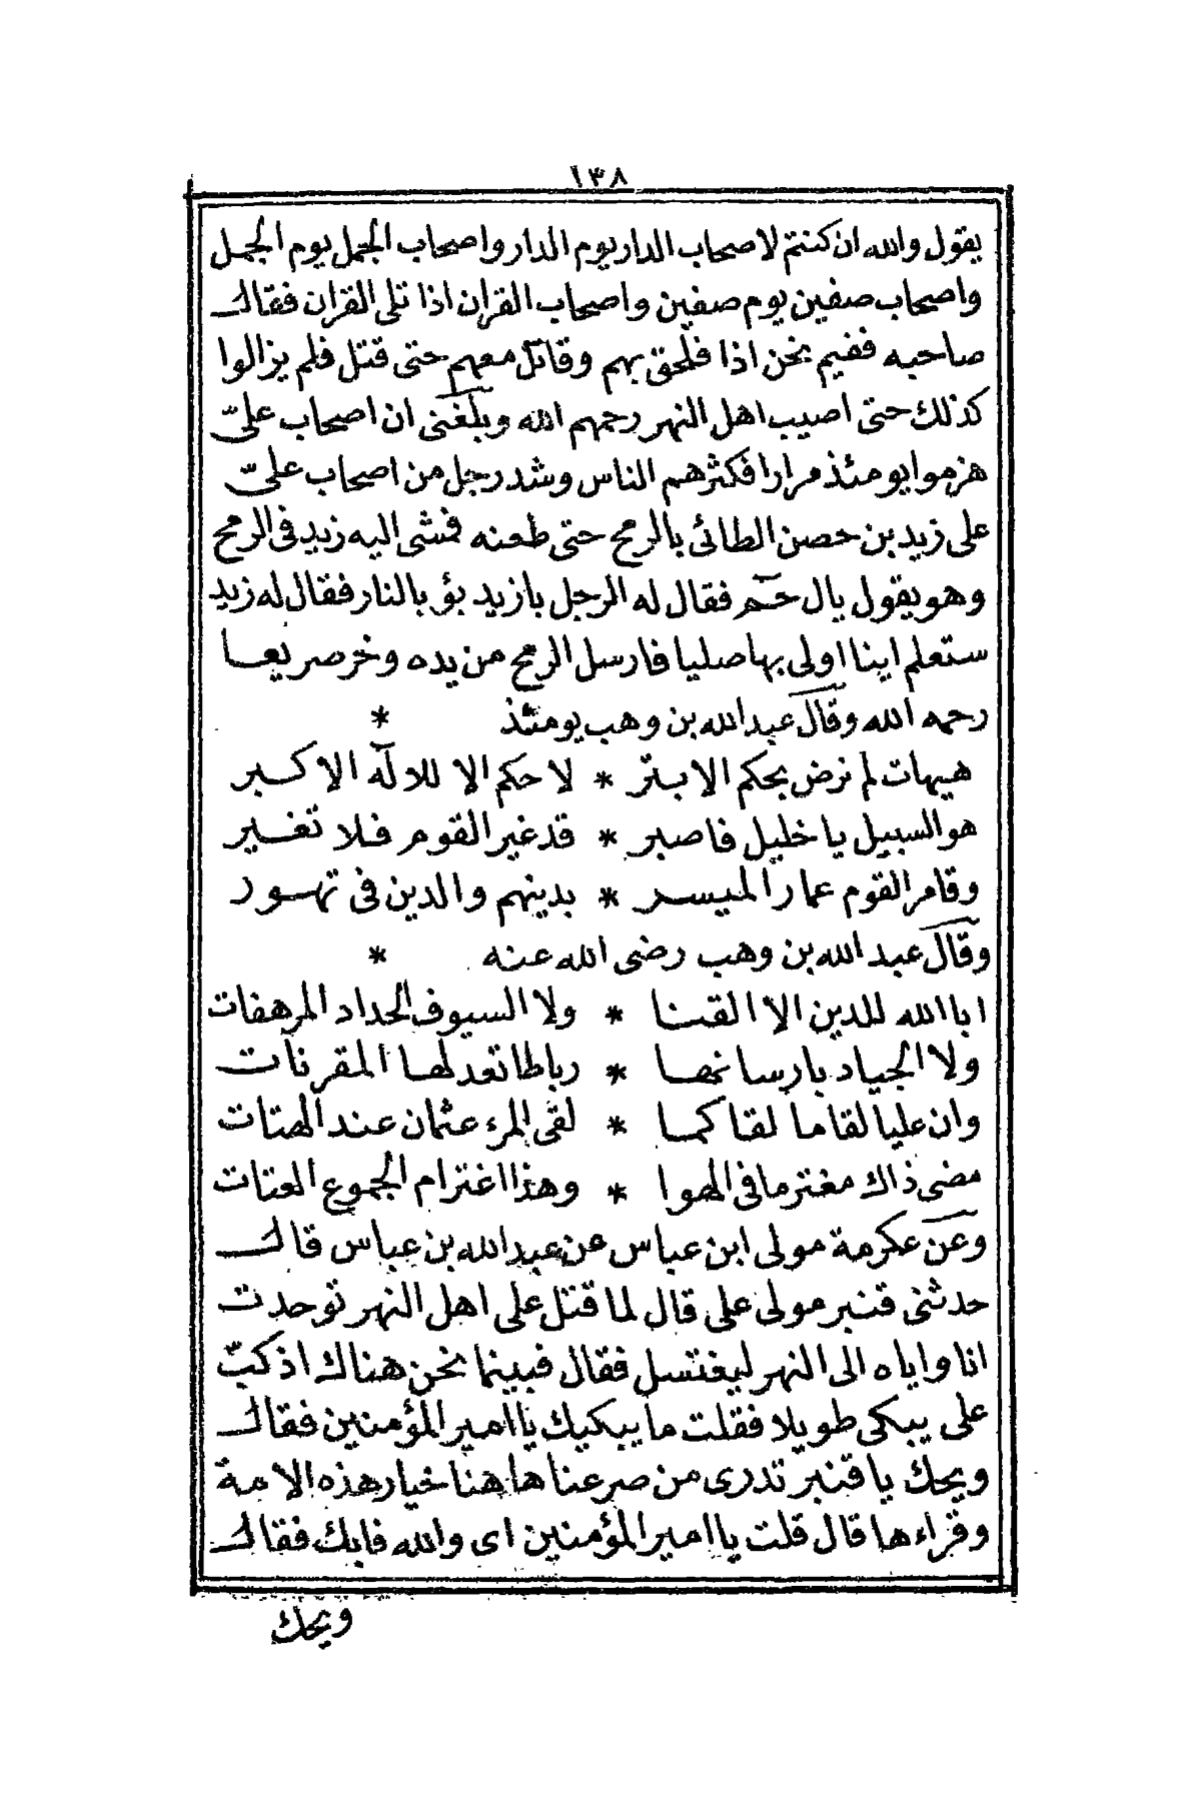 ١٣٨
يقول والله ان كنتم لاصحاب الدار يوم الدار واصحاب الجمل يوم الجمل
واصحاب صفين يوم صفين واصحاب القران اذا تلى القران فقال
صاحبه ففيم نحن اذا فلحق بهم وقاتل معهم حتى قتل فلم يزالوا
كذلك حتى اصيب اهل النهر رحمهم الله وبلغنى ان اصحاب علىّ
هزموا يومئذ مرارا فكثرهم الناس وشد رجل من اصحاب علىّ
على زيد بن حصن الطائى بالرمح حتى طعنه فمشى اليه زيد فى الرمح
وهو يقول يال حم فقال له الرجل يازيد بؤ بالنار فقال له زيد
ستعلم اينا اولى بها صليا فارسل الرمح من يده وخر صريعا
رحمه الله وقال عبد الله بن وهب يومئذ *
هيهات لم نرض بحكم الابتر * لا حكم الا للاله الاكبر
هو السبيل يا خليل فاصبر * قد غير القوم فلا تغير
وقامر القوم عمار الميسر * بدينهم والدين فى تهور
وقال عبد الله بن وهب رضى الله عنه *
ابا الله للدين الا القنا * ولا السيوف الحداد المرهفات
ولا الجياد بارسانها * رباطا تعد لها المقربات
وان عليا لقاما لقا كما * لقى المرء عثمان عند الهتات
مضى ذاك مغترما فى الهوا * وهذا اغترام الجموع العتات
وعن عكرمة مولى ابن عباس عن عبد الله بن عباس قال
حدثنى قنبر مولى على قال لما قتل على اهل النهر توحدت
انا واياه الى النهر ليغتسل فقال فبينما نحن هناك اذ كبّ
على يبكى طويلا فقلت ما يبكيك يا امير المؤمنين فقال
ويحك يا قنبر تدرى من صرعنا هاهنا خيار هذه الامة
وقراءها قال قلت يا امير المؤمنين اى والله فابك فقال
ويحك